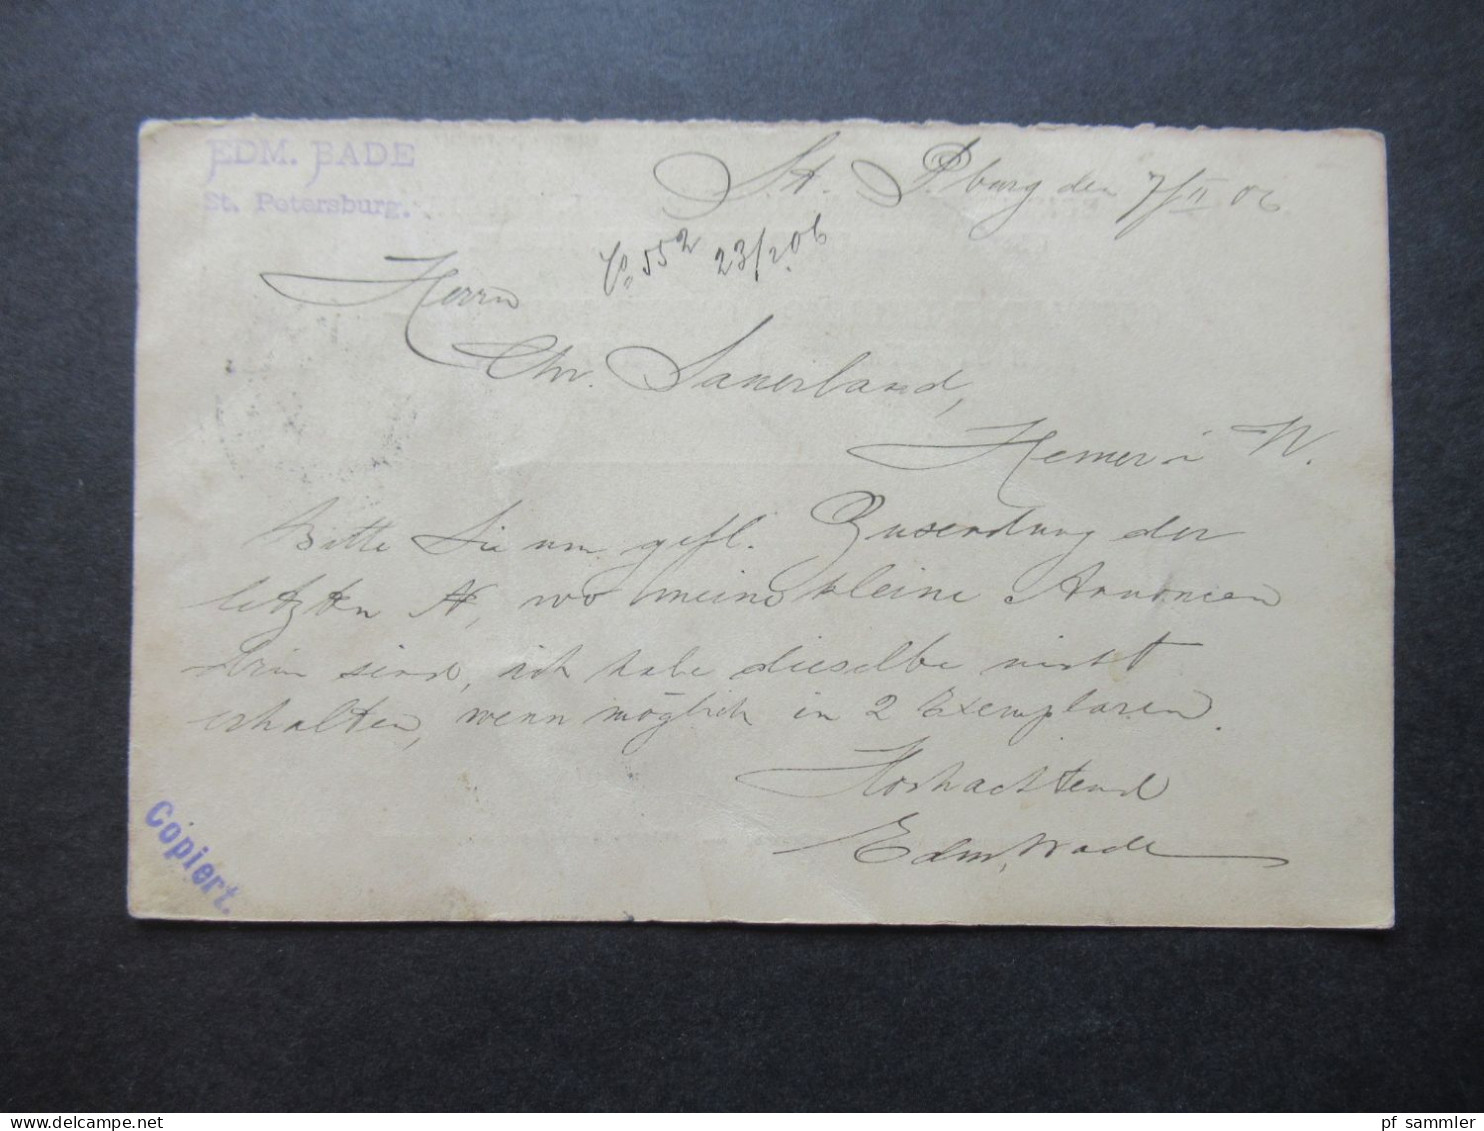 EDM. BADE
St. Petersburg.
St. Pburg den 7/II 06
552 23/2.06
Herrn
Chr. Sauerland,
Hemer i W.
Bitte Sie um gefl. Zusendung der
letzten N, wo meine kleine Annoncen
drin sind, ich habe dieselbe nicht
erhalten, wenn möglich in 2 Exemplaren.
Hochachtend
Edm. Bade
Copiert.
pf sammler